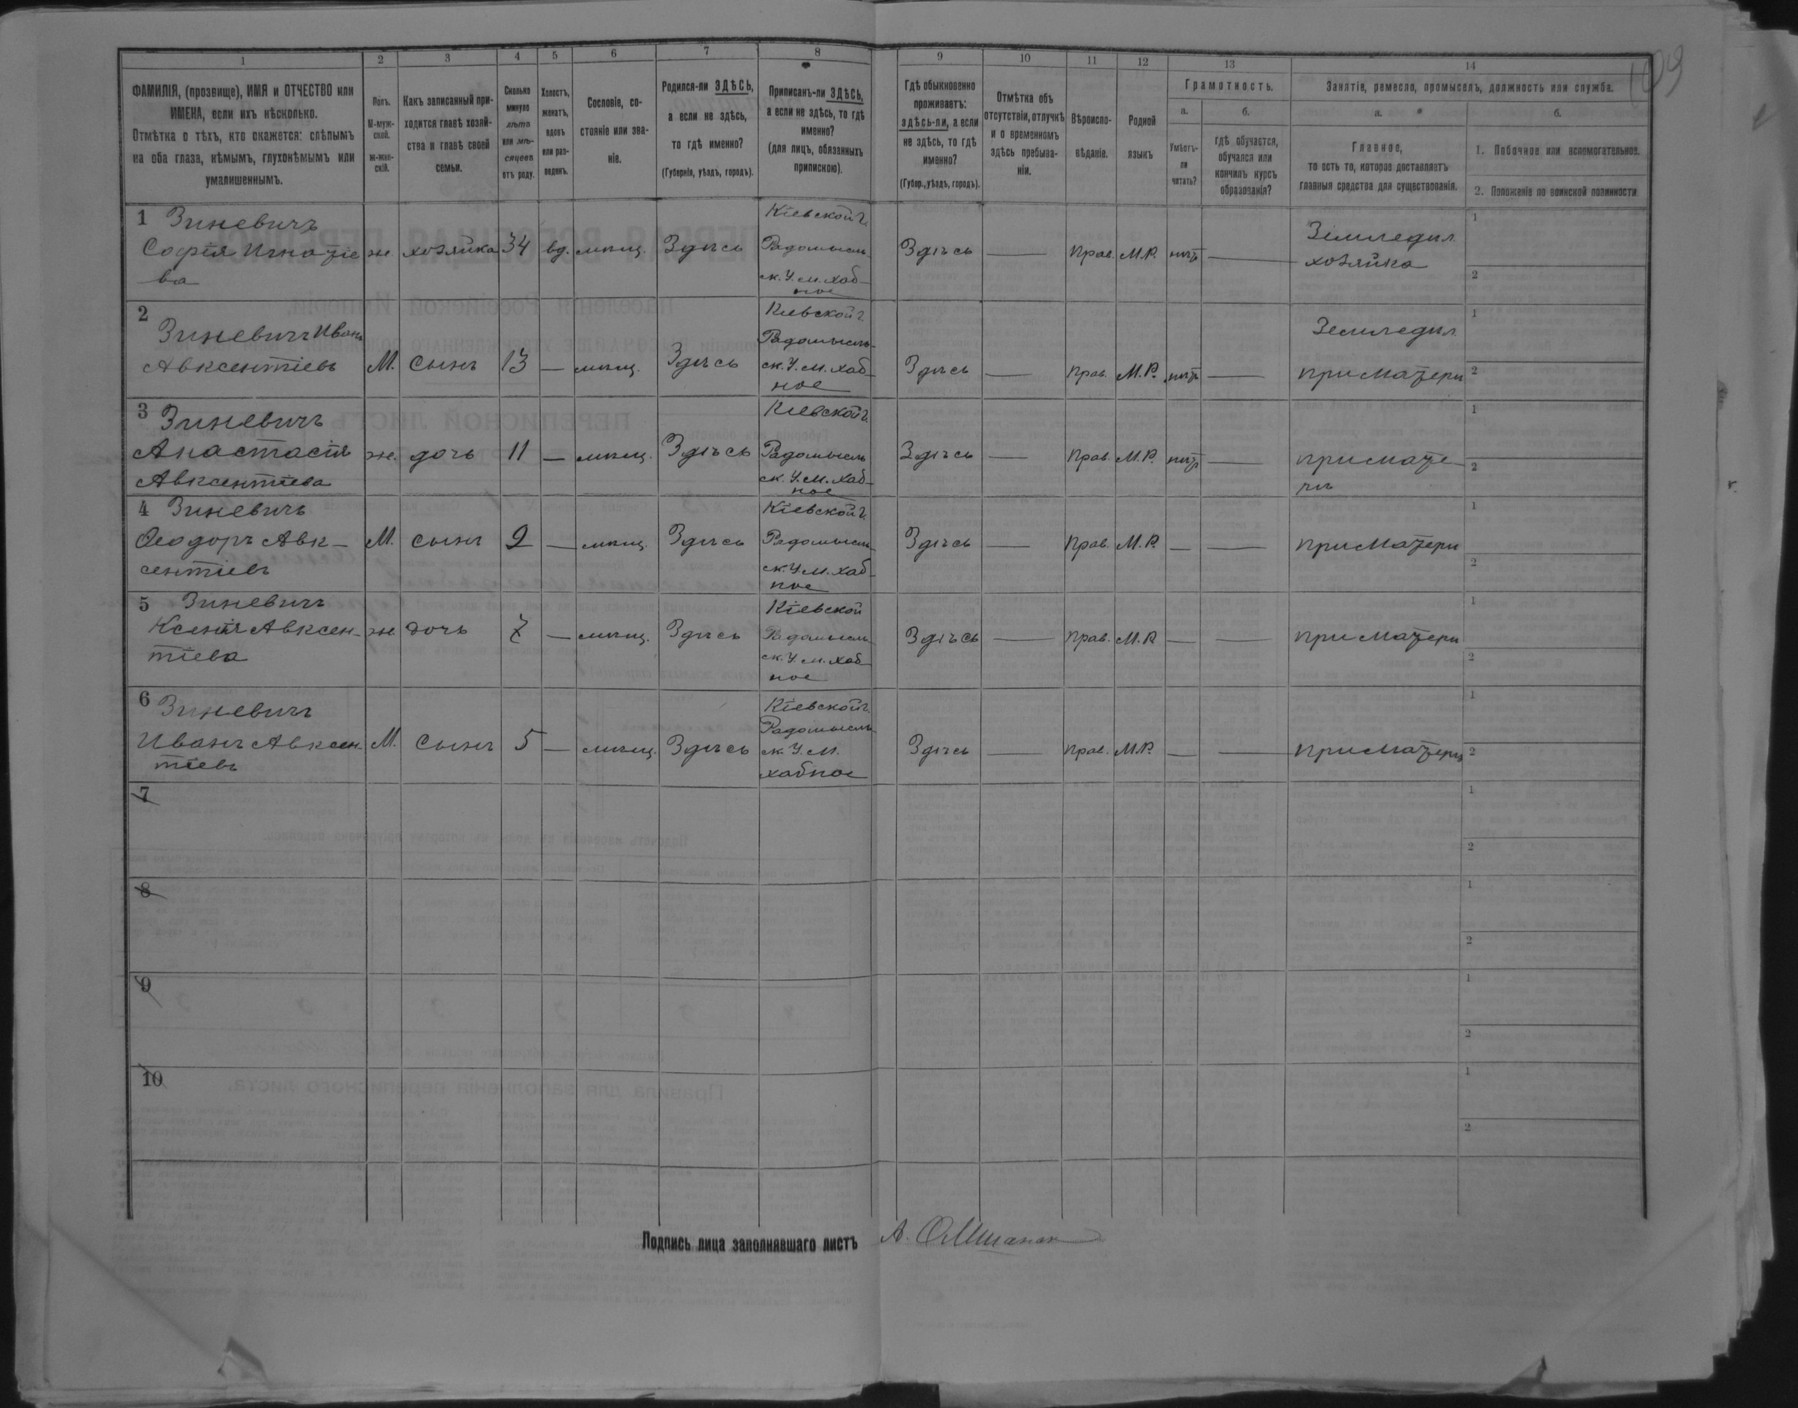 109
1
2
3
4
5
6
7
8
9
10
11
12
13
14
ФАМИЛІЯ, (прозвище), ИМЯ и ОТЧЕСТВО или
ИМЕНА, если ихъ нѣсколько.
Отмѣтка о тѣхъ, кто окажется: слѣпымъ
на оба глаза, нѣмымъ, глухонѣмымъ или
умалишеннымъ.
Полъ.
М-муж-
ской.
ж-жен-
скій.
Какъ записанный при-
ходится главѣ хозяй-
ства и главѣ своей
семьи.
Сколько
минуло
лѣтъ
или мѣ-
сяцевъ
отъ роду.
Холостъ,
женатъ,
вдовъ
или раз-
веденъ.
Сословіе, со-
стояніе или зва-
ніе.
Родился-ли ЗДѢСЬ,
а если не здѣсь,
то гдѣ именно?
(Губернія, уѣздъ, городъ).
Приписанъ-ли ЗДѢСЬ,
а если не здѣсь, то гдѣ
именно?
(для лицъ, обязанныхъ
припискою).
Гдѣ обыкновенно
проживаетъ:
здѣсь-ли, а если
не здѣсь, то гдѣ
именно?
(Губер., уѣздъ, городъ).
Отмѣтка объ
отсутствіи, отлучкѣ
и о временномъ
здѣсь пребыва-
ніи.
Вѣроиспо-
вѣданіе.
Родной
языкъ
Грамотность.
а.
Умѣетъ-
ли
читать?
б.
гдѣ обучается,
обучался или
кончилъ курсъ
образованія?
Занятіе, ремесло, промыселъ, должность или служба.
а.
Главное,
то есть то, которое доставляетъ
главныя средства для существованія.
б.
1. Побочное или вспомогательное.
2. Положеніе по воинской повинности
1 Зиневичъ
Софія Игнатіе
ва
ж хозяйка 34 вд. мѣщ. Здѣсь
Кіевской г
Радомысль
ск. У. м. Хаб-
ное
Здѣсь — Прав. М.Р. нѣтъ —
Земледѣл
хозяйка
1
2
2
Зиневичъ Иванъ
Авксентіевъ
М. сынъ 13 — мѣщ. Здѣсь
Кіевской г
Радомысль-
ск. У. м. Хаб-
ное
Здѣсь — Прав. М.Р. нѣтъ —
Земледѣл
при матери
1
2
3 Зиневичъ
Анастасія
Авксентіева
ж. дочь 11 — мѣщ. Здѣсь
Кіевской г
Радомысль
ск. У. м. Хаб-
ное
Здѣсь — Прав. М.Р. нѣтъ —
при мате-
ри
1
2
4 Зиневичъ
Ѳеодоръ Авк-
сентіевъ
М. сынъ 9 — мѣщ Здѣсь
Кіевской г.
Радомысль-
ск. У. м. Хаб-
ное
Здѣсь — Прав. М.Р. — —
при матери
1
2
5 Зиневичъ
Ксенія Авксен-
тіева
ж дочь 7 — мѣщ. Здѣсь
Кіевской
Радомысль
ск. У. м. Хаб
ное
Здѣсь — Прав. М.Р. — —
при матери
1
2
6 Зиневичъ
Иванъ Авксен.
тіевъ
М. сынъ 5 — мѣщ. Здѣсь
Кіевской г
Радомысль
ск. У. м.
Хабное
Здѣсь — Прав. М.Р. — —
при матери
1
2
7
1
2
8
1
2
9
1
2
10
1
2
Подпись лица заполнявшаго листъ А.